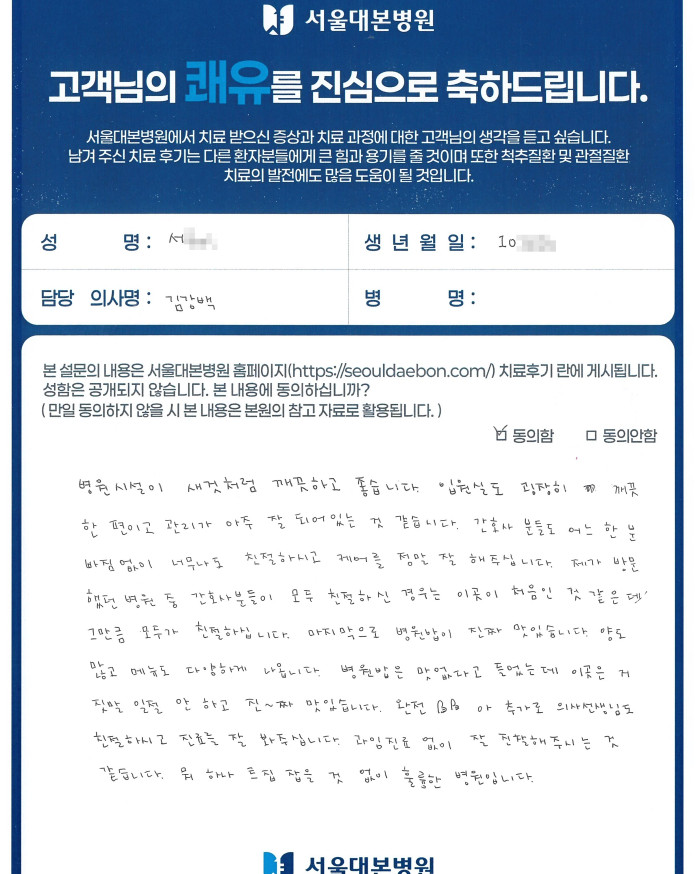 서울대본병원
고객님의 쾌유를 진심으로 축하드립니다.
서울대본병원에서 치료 받으신 증상과 치료 과정에 대한 고객님의 생각을 듣고 싶습니다.
남겨 주신 치료 후기는 다른 환자분들에게 큰 힘과 용기를 줄 것이며 또한 척추질환 및 관절질환
치료의 발전에도 많음 도움이 될 것입니다.
성 명 : 서
생 년 월 일 : 10
담당 의사명 : 김강백
병 명 :
본 설문의 내용은 서울대본병원 홈페이지(https://seouldaebon.com/) 치료후기 란에 게시됩니다.
성함은 공개되지 않습니다. 본 내용에 동의하십니까?
( 만일 동의하지 않을 시 본 내용은 본원의 참고 자료로 활용됩니다. )
동의함 동의안함
병원시설이 새것처럼 깨끗하고 좋습니다. 입원실도 굉장히 깨끗
한 편이고 관리가 아주 잘 되어있는 것 같습니다. 간호사 분들도 어느 한 분
빠짐없이 너무나도 친절하시고 케어를 정말 잘 해주십니다. 제가 방문
했던 병원 중 간호사분들이 모두 친절하신 경우는 이곳이 처음인 것 같은데
그만큼 모두가 친절하십니다. 마지막으로 병원밥이 진짜 맛있습니다. 양도
많고 메뉴도 다양하게 나옵니다. 병원밥은 맛없다고 들었는데 이곳은 거
짓말 일절 안 하고 진~짜 맛있습니다. 완전 아 추가로 의사선생님도
친절하시고 진료를 잘 봐주십니다. 과잉진료 없이 잘 진찰해주시는 것
같습니다. 뭐 하나 트집 잡을 것 없이 훌륭한 병원입니다.
서울대본병원